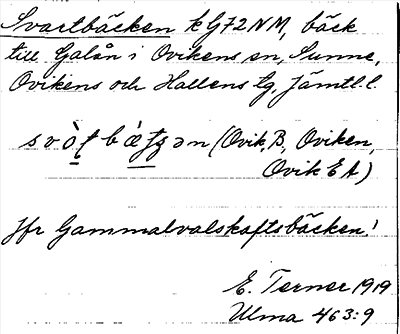 Svartbäcken k G72 NM, bäck
till Galån i Ovikens sn, Sunne,
Ovikens och Hallens tg, Jämtl. l.
(Ovik, B, Oviken,
Ovik E A)
Jfr Gammalvalskaftsbäcken!
E. Terner 1919
Ulma 463:9